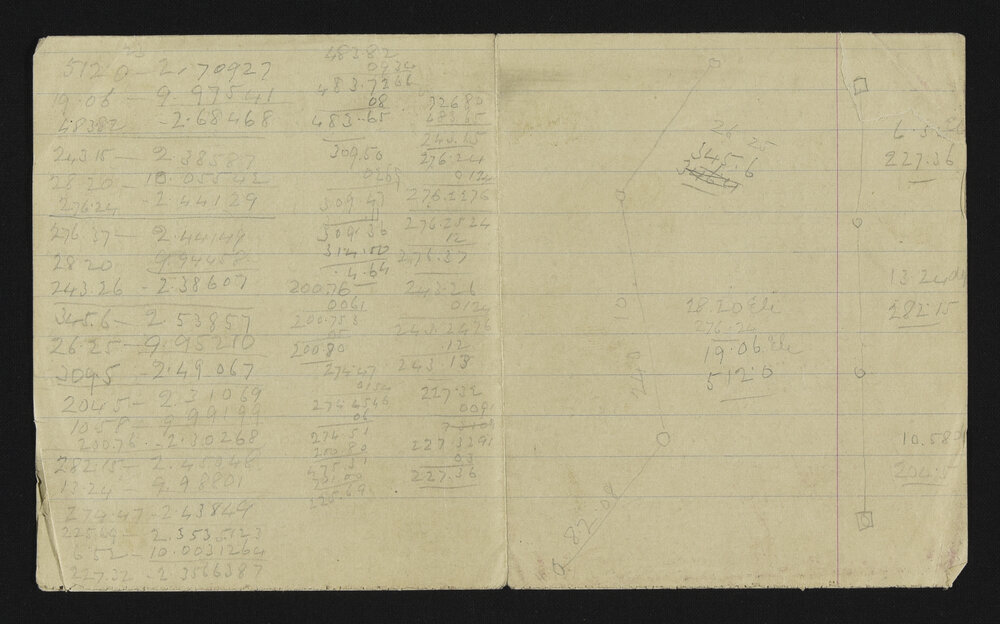 5120 - 2.70927
19.06 - 9.97541
48382 - 2.68468
243.15 - 2.38587
28.20 - 10.05542
276.24 - 2.44129
276.37 - 2.44149
28 20 9.94458
243.26 - 2.38607
345.6 - 2.53857
26.25 - 9.95210
3095 - 2.49067
2045 - 2.31069
10.58 - 9.99199
200.76 - 2.30268
282.15 - 2.45048
13.24 - 9.98801
274.47 - 2.43849
225.69 - 2.3535123
6.52 - 10.0031264
227.32 - 2.3566387
483.82
0934
483.7266
08
483.65
309.50
309 43
309.36
314.00
4.64
20076
0061
200.753
05
200.80
274.47
0134
274.4566
06
274.51
200.80
475.31
225.69
72680
483.65
243.15
276.24
0124
276.2376
276.2524
12
276.37
243.26
0124
243.2476
.12
243.13
227.32
0091
227.3291
03
227.36
26 25
345.6
28.20 Ele
276.24
19.06 Ele
512.0
82.08
6.52 Ele
227.36
13.24
282.15
10.58
204.5